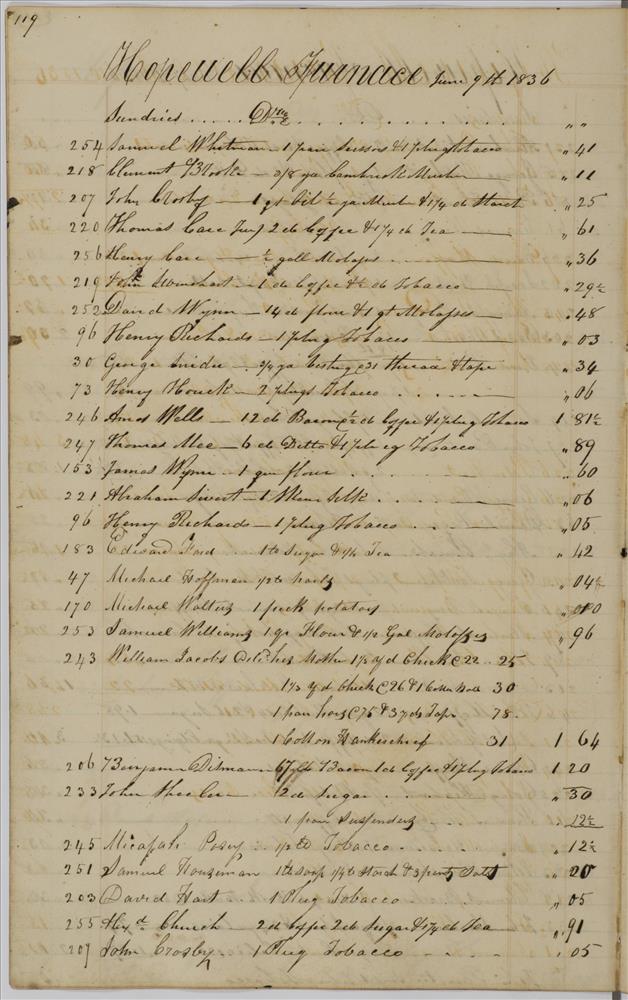 119
Hopewell Furnace June 9th 1836
Sundries Drs " "
254 Samuel Whitman 1 pair Sissors & 1 plug tobacco " 41
218 Clement Brooke 3/8 yd Cambrick Muslin " 11
207 John Crosby 1 qt oil ½ yd Muslin & 1/4 do Starch " 25
220 Thomas Care Junr 2 do Coffee & 1/4 do Tea " 61
256 Henry Care ½ gall Molases " 36
219 John 1 do Coffee & ½ do Tobacco " 29½
252 David Wynn 14 do flour & 1 qt Molasses " 48
96 Henry Richards 1 plug Tobacco " 03
30 George Snider 3/4 yd 31 thread & tape " 34
73 Henry Houck 2 plugs Tobacco " 06
246 Amos Wells 12 do Bacon ½ do Coffee & 1 plug Tobacco 1 81½
247 Thomas Mee 6 do Ditto & 1 plug Tobacco " 89
153 James Wynn 1 qur flour " 60
221 Abraham Sivert 1 Skein Silk " 06
96 Henry Richards 1 plug Tobacco " 05
183 Edward Ford 1 lb Sugar & 1/4 Tea " 42
47 Michael Hoffman 1/2 lb " 04½
170 Michael Walters 1 peck potatoes "
253 Samuel Williams 1 qr Flour & 1/2 Gal Molasses " 96
243 William Jacobs Deld his Mother 1½ yd Check @ 22 25
1½ yd Check @ 26 & 1 Cotton 30
1 pair @ 75 & 3 yds Tape 78
1 Cotton Hankerchief 31 1 64
206 Benjamin Ditman 67 lb Bacon 1 do Coffee & 1 plug Tobacco 1 20
233 John 2 do Sugar " 30
1 pair Suspenders " 12½
245 Micajah Posey 1/2 lb Tobacco " 12½
251 Samuel Houseman 1 lb soap 1/4 lb Starch & 3 Salt " 20
203 David Hart 1 Plug Tobacco " 05
255 Church 2 do Coffee 2 do Sugar & 1/4 do Tea " 91
207 John Crosby 1 Plug Tobacco " 05